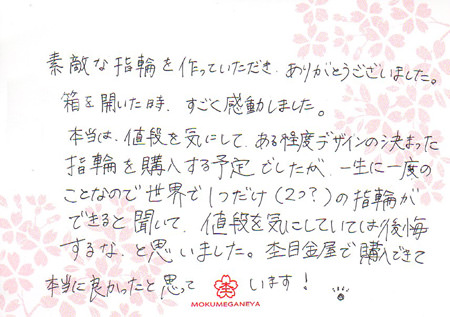 素敵な指輪を作っていただき、ありがとうございました。
箱を開いた時、すごく感動しました。
本当は、値段を気にして、ある程度デザインの決まった
指輪を購入する予定でしたが、一生に一度の
ことなので世界で1つだけ(2つ?)の指輪が
できると聞いて、値段を気にしていては後悔
するな、と思いました。杢目金屋で購入できて
本当に良かったと思って います!
MOKUMEGANEYA